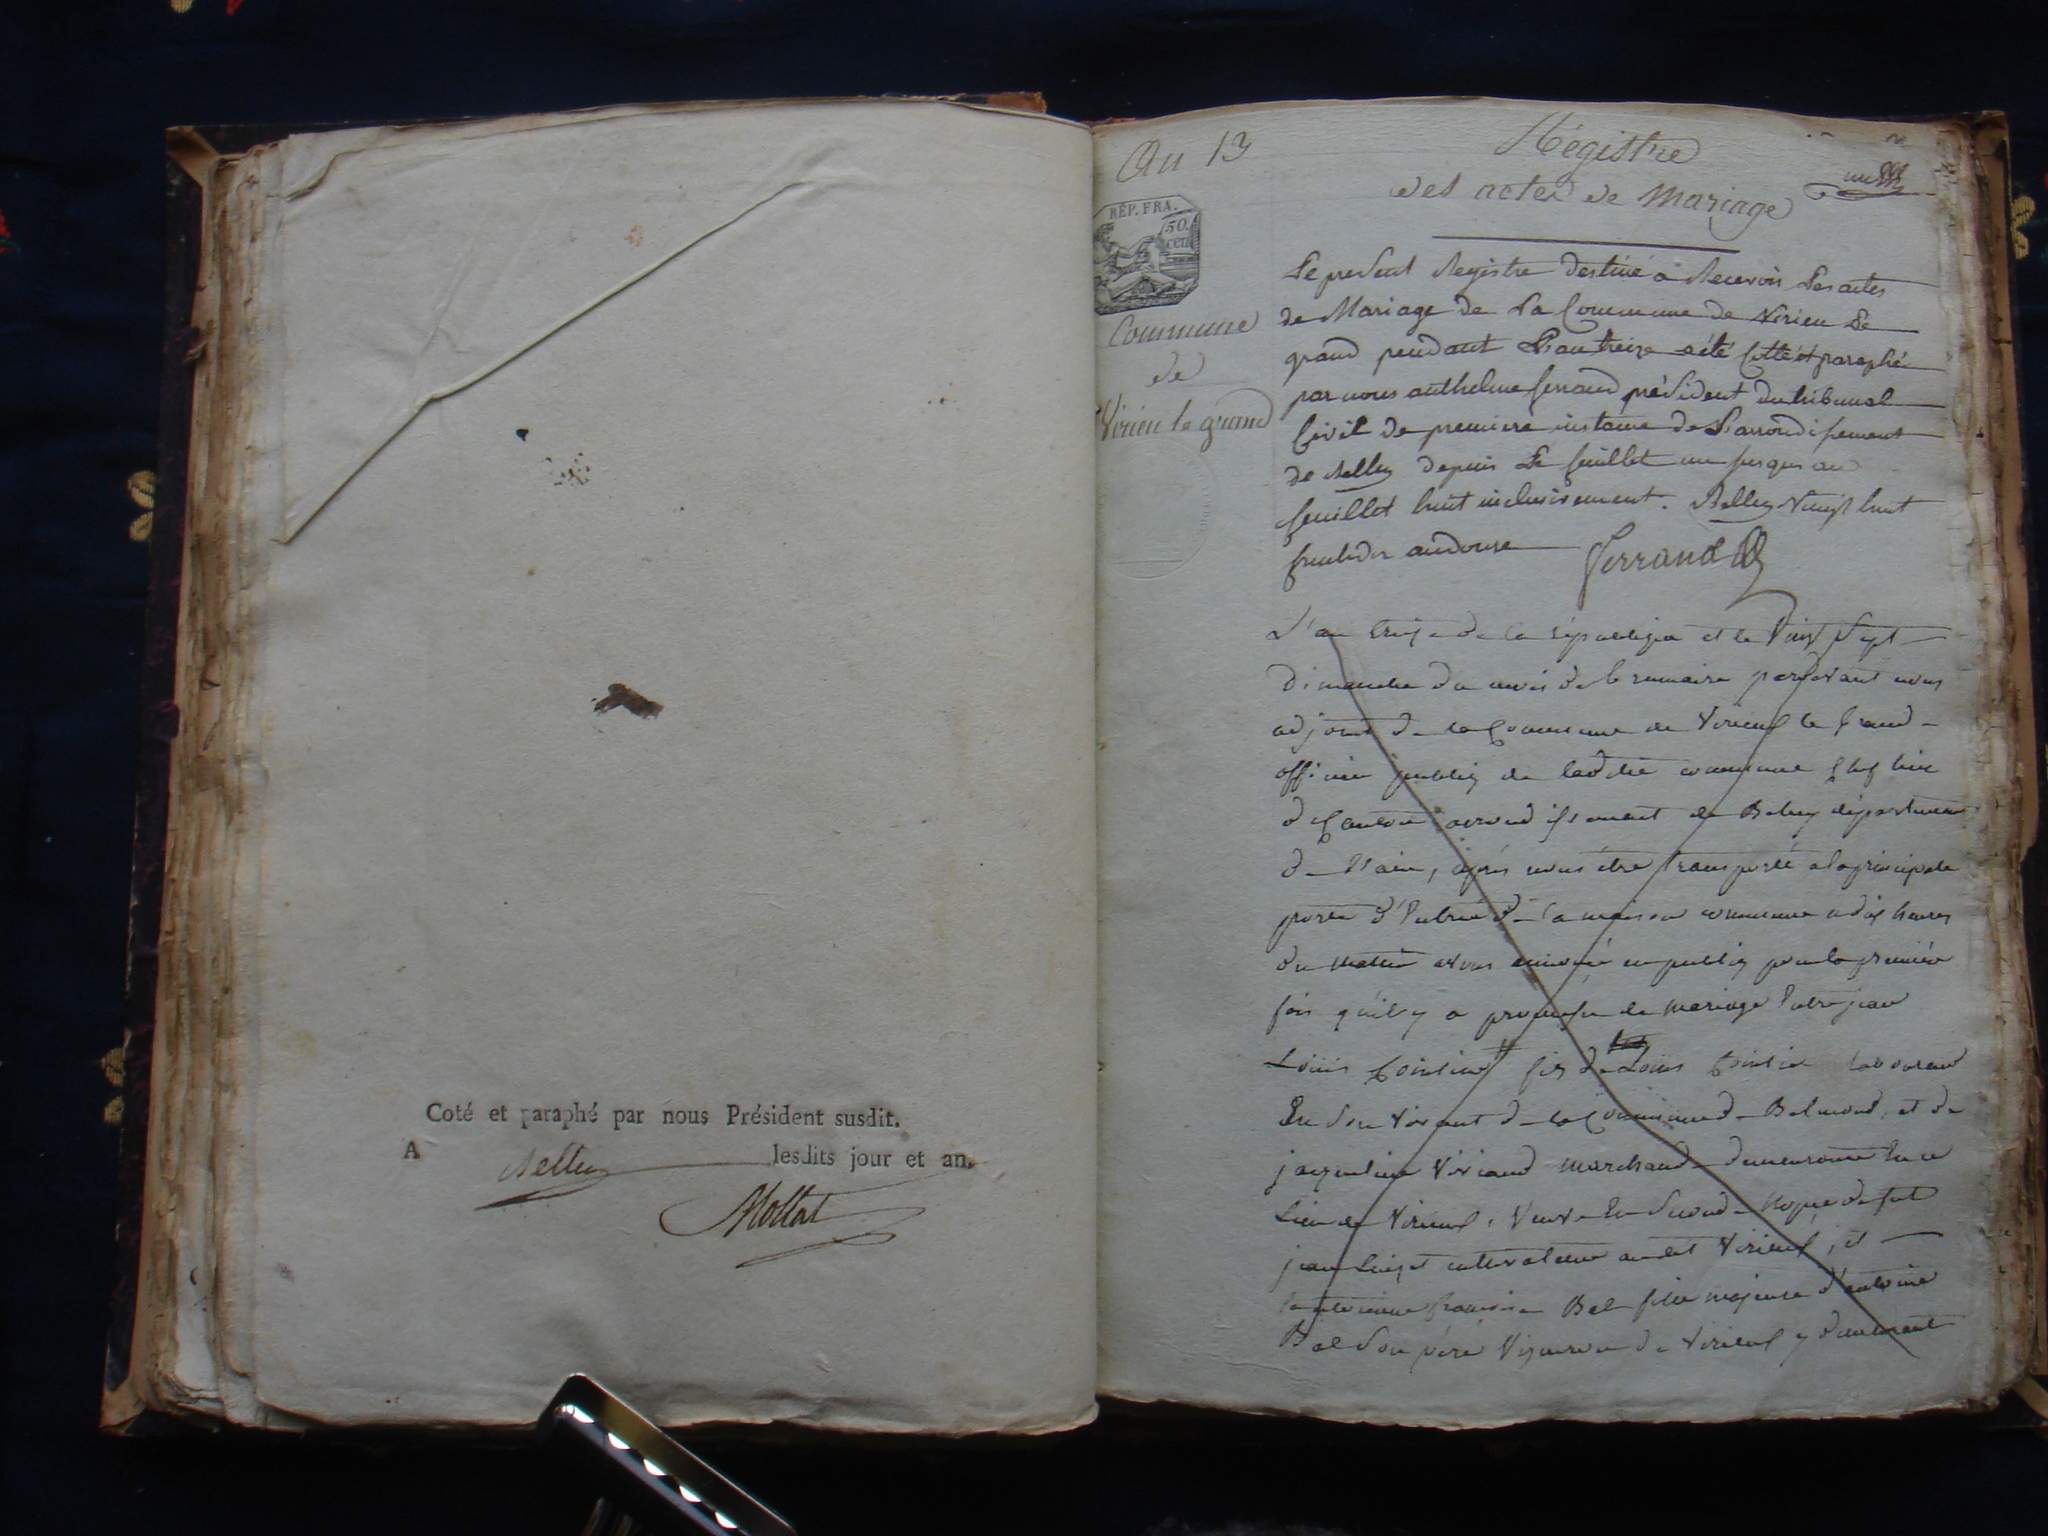 Coté et paraphé par nous Président susdit.
A Belley lesdits jour et an.
Mollet
An 13
Régistre
des actes de Mariage
un
RÉP. FRA.
50
cen
Commune
de
Virieu le grand
Le present Registre destiné a Recevoir Les actes
de Mariage de La Commune de Virieu Le
grand pendant L'an treize a été Cotté et paraphé
par nous anthelme ferrand président du tribunal
Civil de premiere instance de L'arrondissement
de Belley depuis Le feuillet un jusques au
feuillet huit inclusivement. Belley Vingt huit
fructidor an douze Ferrand
L'an treize de la république et le Vingt Sept
Dimanche du mois de brumaire pardevant nous
adjoint de la Commune de Virieux le Grand
officier public de laditte commune chef lieu
de Canton arrondissement de Beley département
de l'ain, après nous être transporté a la principale
porte d'Entrée de la maison commune a dix heures
du matin avons annoncé en public pour la premiére
fois qu'il y a promesse de mariage Entre jean
Louis fils de Louis Laboureur
En Son Vivant de la Commune de Belmond, et de
jacqueline Viviand marchande demeurante En ce
Lieu de Virieux, Veuve En Seconde Noçe de fut
jean cultivateur audit Virieux, et
francoise Bal fille majeure d'antoine
Bal Son pére Vigneron de Virieux y demeurant